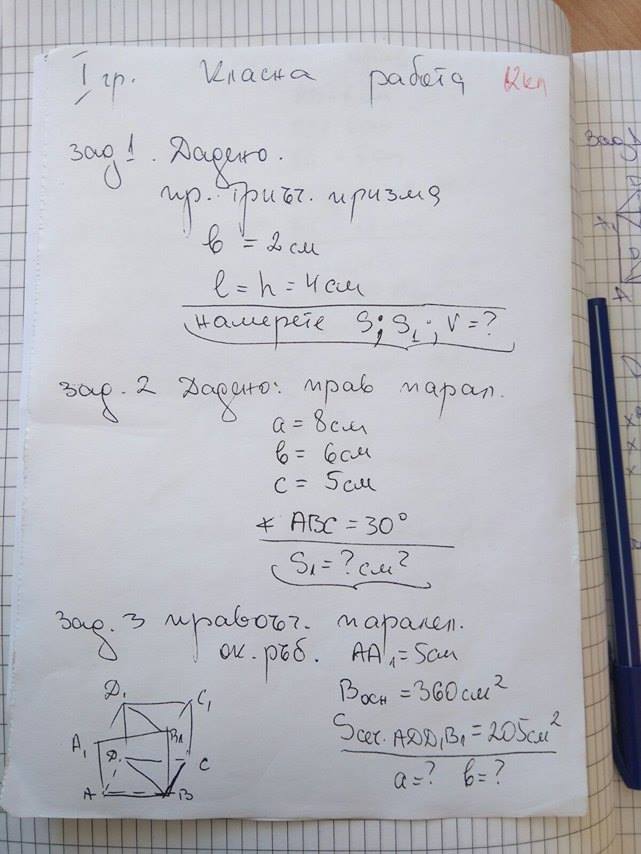 I гр. Класна работа 12кл
зад 1. Дадено.
пр. триъг. призма
b = 2 см
l = h = 4 см
намерете S; S₁; V = ?
зад. 2 Дадено: прав парал.
a = 8 см
b = 6 см
c = 5 см
∢ ABC = 30°
S₁ = ? см²
зад. 3 правоъг. паралел.
ок. ръб. AA₁ = 5 см
Bосн = 360 см²
Sсеч. ADD₁B₁ = 205 см²
a = ? b = ?
D₁ C₁
A₁ B₁
D C
A B
зад 1